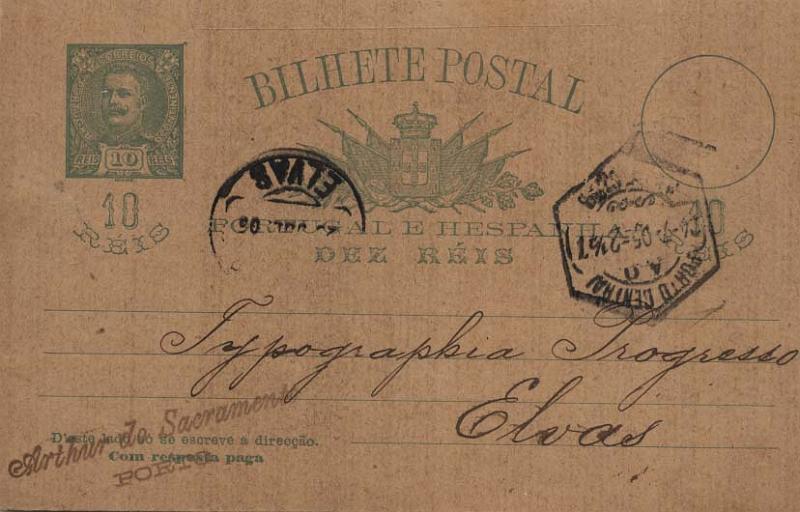 CORREIOS
REIS 10 REIS
10
RÉIS
BILHETE POSTAL
PORTUGAL E HESPANHA
DEZ RÉIS
10
RÉIS
ELVAS
05
PORTO CENTRAL
Typographia Progresso
Elvas
Arthur do Sacramento
PORTO
D'este lado só se escreve a direcção.
Com resposta paga